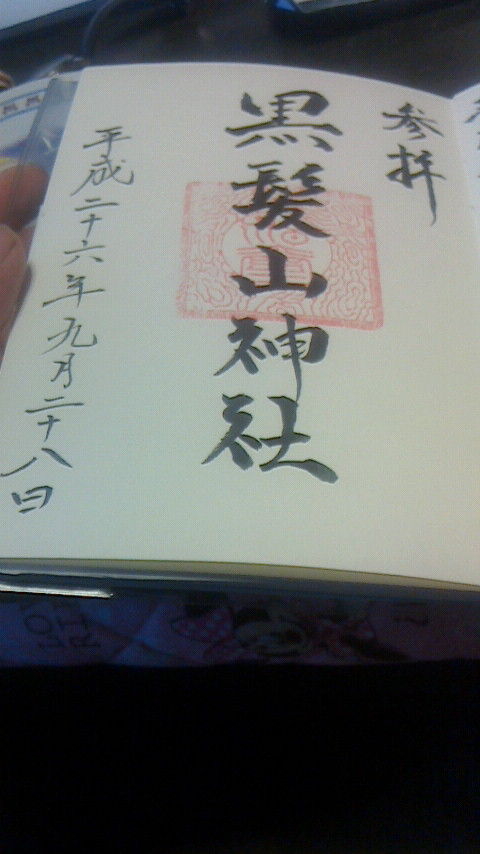 参拝
黒髪山神社
平成二十六年九月二十八日